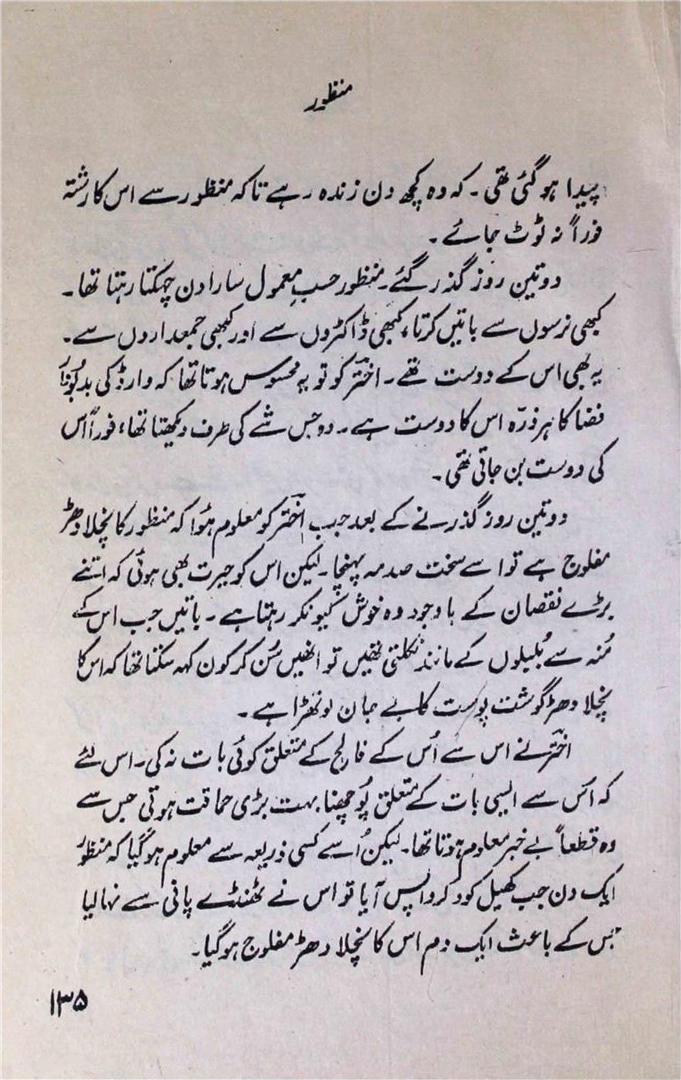 منظور
پیدا ہو گئی تھی۔ کہ وہ کچھ دن زندہ رہے تاکہ منظور سے اس کا رشتہ
فوراً نہ ٹوٹ جائے۔
دو تین روز گذر گئے۔ منظور حسبِ معمول سارا دن چہکتا رہتا تھا۔
کبھی نرسوں سے باتیں کرتا، کبھی ڈاکٹروں سے اور کبھی جمعداروں سے۔
یہ بھی اس کے دوست تھے۔ اختر کو تو یہ محسوس ہوتا تھا کہ وارڈ کی بدبودار
فضا کا ہر ذرّہ اس کا دوست ہے۔ وہ جس شے کی طرف دیکھتا تھا، فوراً اُس
کی دوست بن جاتی تھی۔
دو تین روز گذرنے کے بعد جب اختر کو معلوم ہؤا کہ منظور کا نچلا دھڑ
مفلوج ہے تو اسے سخت صدمہ پہنچا۔ لیکن اس کو حیرت بھی ہوئی کہ اتنے
بڑے نقصان کے باوجود وہ خوش کیونکر رہتا ہے۔ باتیں جب اس کے
مُنہ سے بُلبلوں کے مانند نکلتی تھیں تو انھیں سُن کر کون کہہ سکتا تھا کہ اس کا
نچلا دھڑ گوشت پوست کا بے جان لوتھڑا ہے۔
اختر نے اس سے اُس کے فالج کے متعلق کوئی بات نہ کی۔ اس لئے
کہ اُس سے ایسی بات کے متعلق پُوچھنا بہت بڑی حماقت ہوتی جس سے
وہ قطعاً بے خبر معلوم ہوتا تھا۔ لیکن اُسے کسی ذریعہ سے معلوم ہو گیا کہ منظور
ایک دن جب کھیل کود کر واپس آیا تو اس نے ٹھنڈے پانی سے نہا لیا
جس کے باعث ایک دم اس کا نچلا دھڑ مفلوج ہو گیا۔
۱۳۵